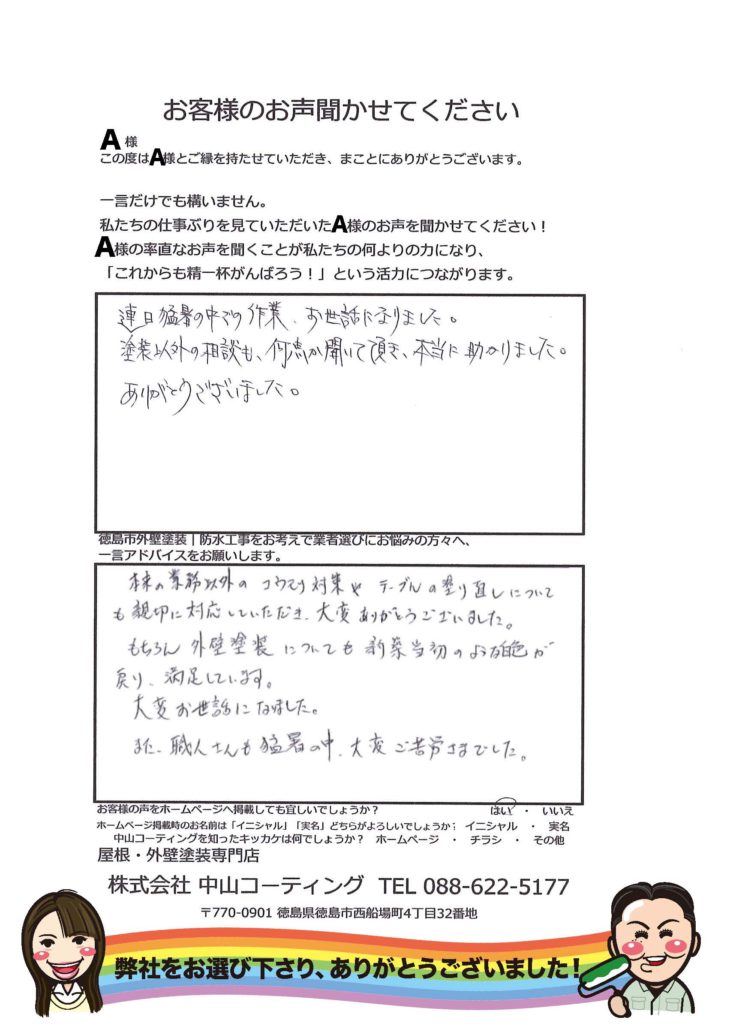 お客様のお声聞かせてください
A 様
この度はA様とご縁を持たせていただき、まことにありがとうございます。
一言だけでも構いません。
私たちの仕事ぶりを見ていただいたA様のお声を聞かせてください！
A様の率直なお声を聞くことが私たちの何よりの力になり、
「これからも精一杯がんばろう！」という活力につながります。
連日猛暑の中での作業、お世話になりました。
塗装以外の相談も、何点か聞いて頂き、本当に助かりました。
ありがとうございました。
徳島市外壁塗装｜防水工事をお考えで業者選びにお悩みの方々へ、
一言アドバイスをお願いします。
本来の業務以外のコウモリ対策やテーブルの塗り直しについて
も親切に対応していただき、大変ありがとうございました。
もちろん外壁塗装についても新築当初のような白色が
戻り、満足しています。
大変お世話になりました。
また、職人さんも猛暑の中、大変ご苦労さまでした。
お客様の声をホームページへ掲載しても宜しいでしょうか？ はい ・ いいえ
ホームページ掲載時のお名前は「イニシャル」「実名」どちらがよろしいでしょうか？ イニシャル ・ 実名
中山コーティングを知ったキッカケは何でしょうか？ ホームページ ・ チラシ ・ その他
屋根・外壁塗装専門店
株式会社 中山コーティング TEL 088-622-5177
〒770-0901 徳島県徳島市西船場町4丁目32番地
弊社をお選び下さり、ありがとうございました！